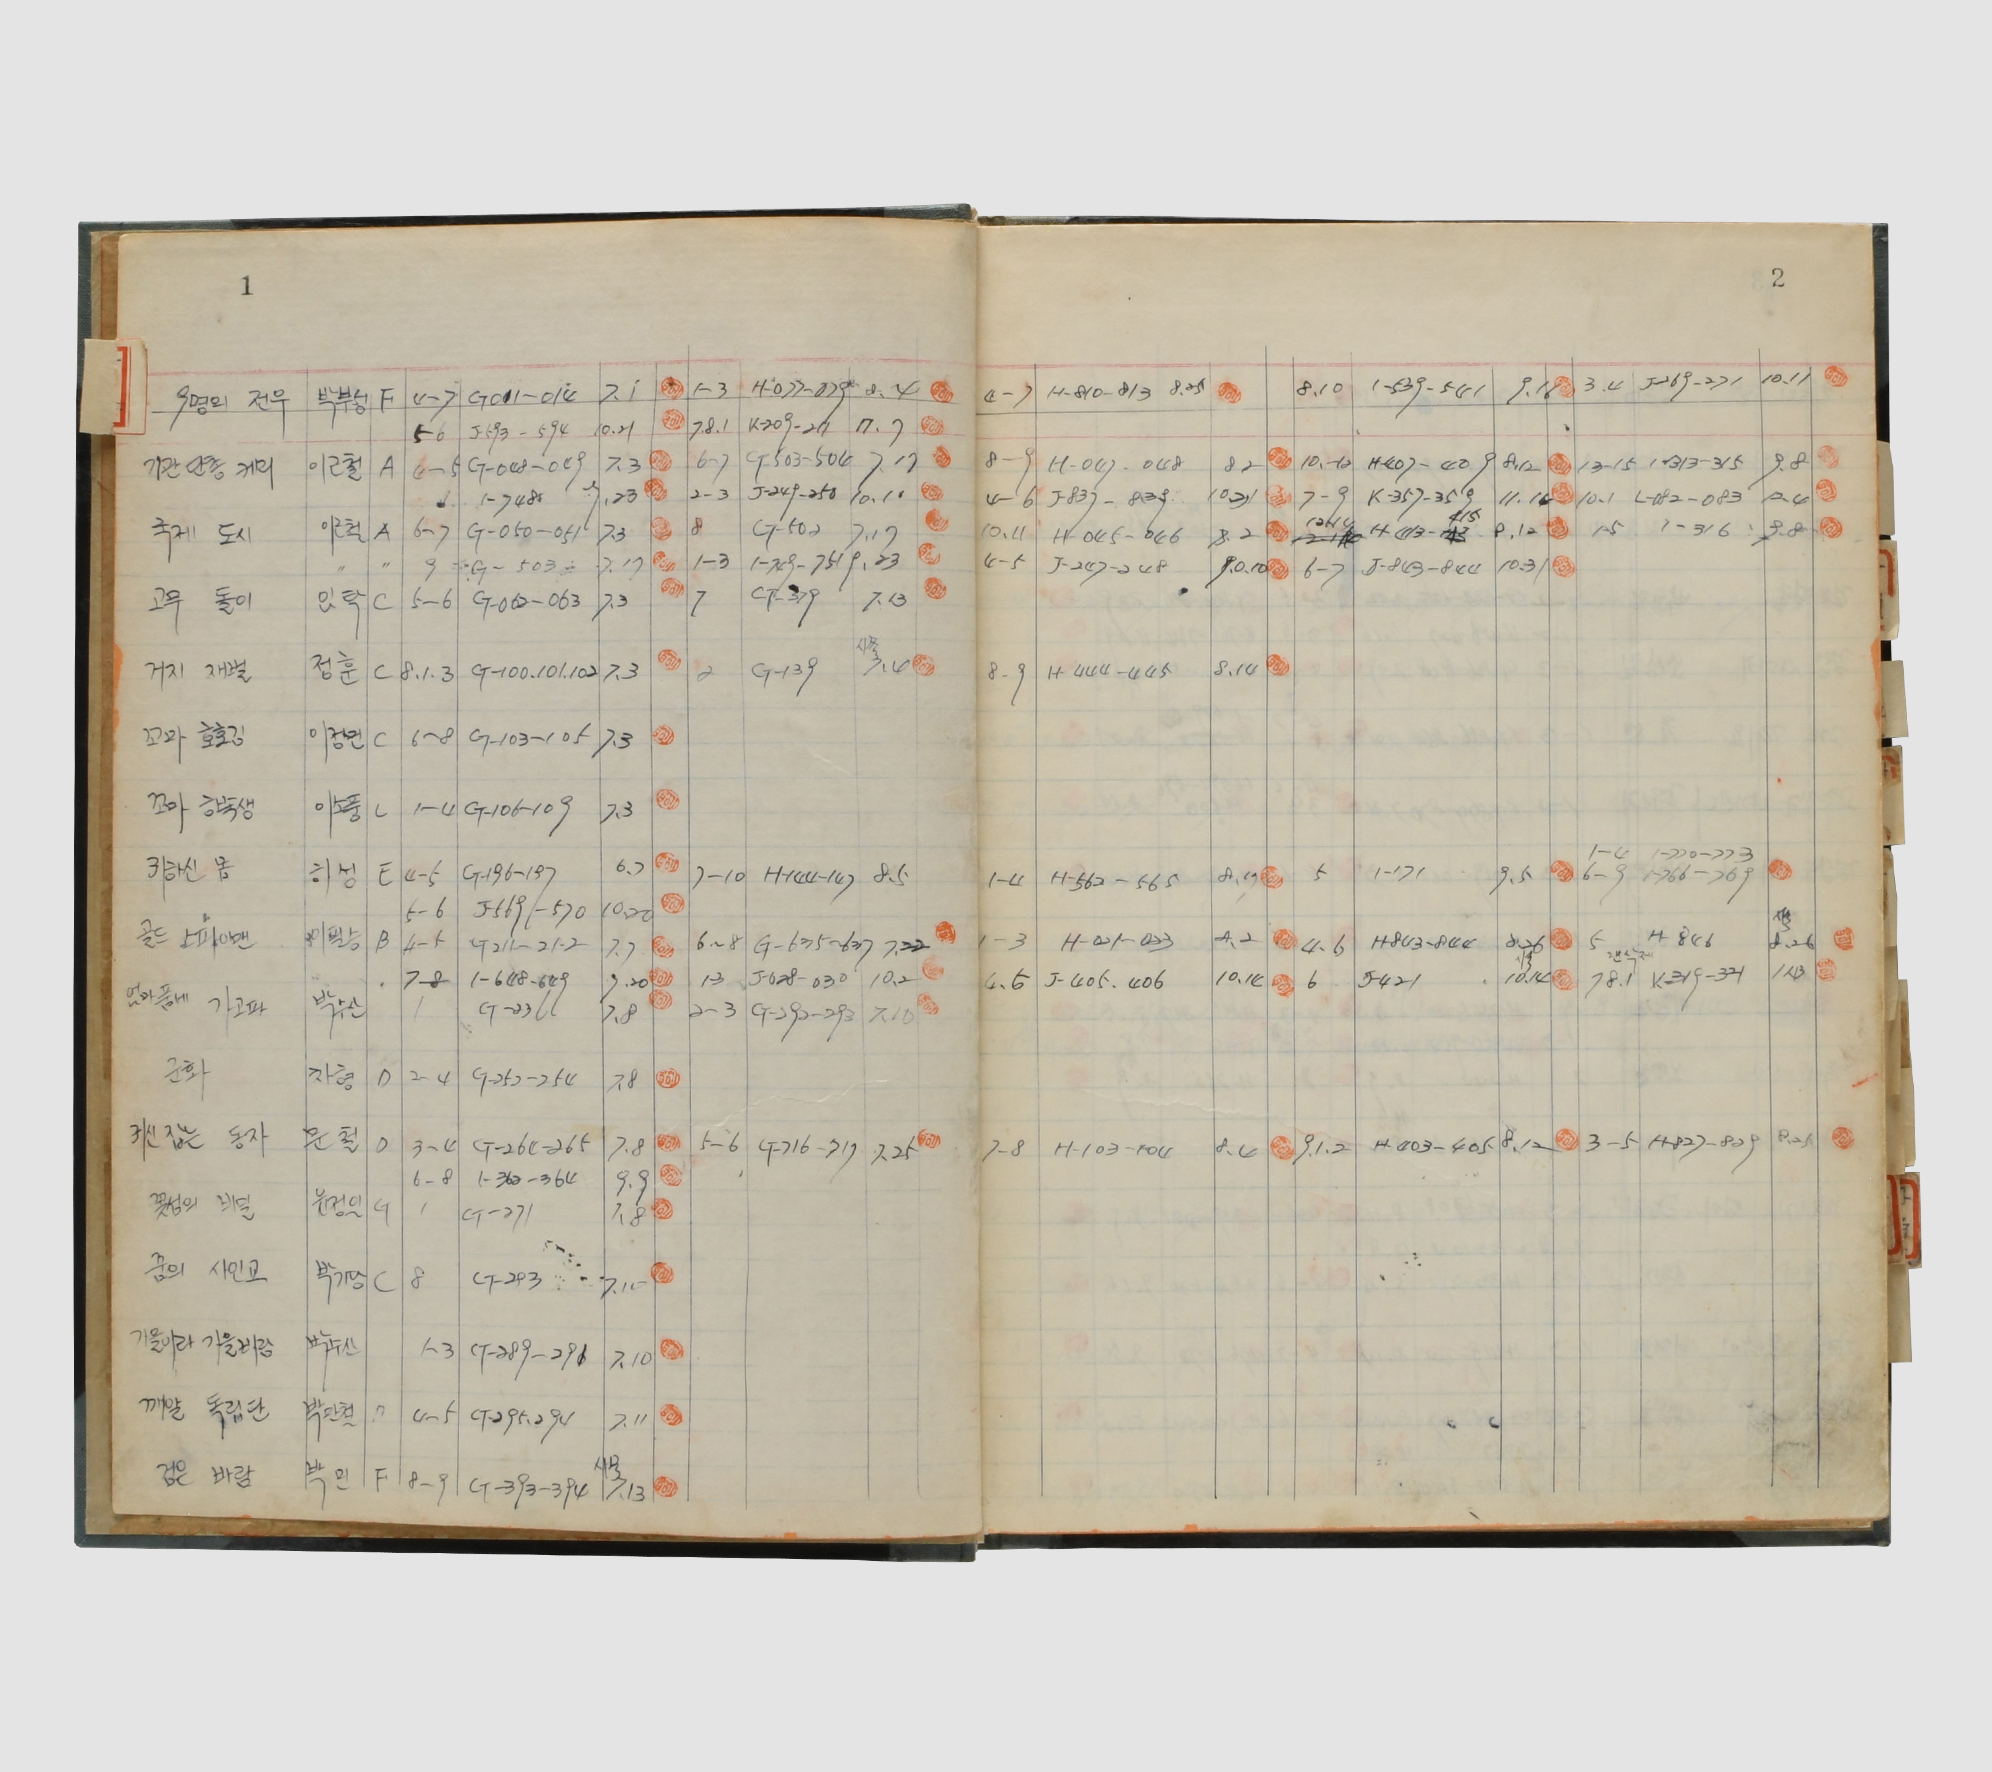 1
9명의 전우 박부성 F 4-7 G011-014 7.1 1-3 H-077-079 8.4
5-6 J-593-594 10.21 7.8.1 K-209-211 11.7
이근철 A 4-5 G-048-049 7.3 6-7 G-503-504 7.17
1-748 9.23 2-3 J-249-250 10.10
국제 도시 이근철 A 6-7 G-050-051 7.3 8 G-502 7.17
" " 9 G-503 7.17 1-3 1-749-751 9.23
고무 돌이 임탁 C 5-6 G-062-063 7.3 7 G-379 7.13
거지 재벌 정훈 C 8.1.3 G-100.101.102 7.3 2 G-139 7.4
꼬마 호호김 C 6-8 G-103-105 7.3
꼬마 1-4 G-106-109 7.3
귀하신 몸 허성 E 4-5 G-196-197 6.7 7-10 H-144-147 8.5
5-6 J-569-570 10.20
골드 스파이맨 B 4-5 G-211-212 7.7 6-8 G-635-637 7.22
7-8 1-648-649 9.20 J-028-030 10.2
엄마품에 가고파 박수산 1 7.8 2-3 G-292-293 7.10
군화 차형 D 2-4 G-252-254 7.8
귀신 잡는 동자 문철 D 3-4 G-264-265 7.8 5-6 G-716-717 7.25
6-8 1-362-364 9.9
꽃섬의 비밀 G 1 G-271 7.8
꿈의 사인교 박기당 C 8 G-293
가을이라 가을바람 박수산 1-3 G-289-291 7.10
깨알 독립단 4-5 G-295.294 7.11
검은 바람 박민 F 8-9 G-393-394 7.13
2
4-7 H-810-813 8.25 8.10 1-539-541 9.18 3.4 J-269-271 10.11
8-9 H-047-048 8.2 10-12 H-407-409 8.12 13-15 1-313-315 9.8
4-6 J-837-839 10.31 7-9 K-357-359 11.16 10.1 L-082-083 12.4
10.11 H-045-046 8.2 8.12 15 1-316 9.8
4-5 J-247-248 10.10 6-7 J-843-844 10.31
8-9 H-444-445 8.14
1-4 1-770-773
1-4 H-562-565 8.19 5 1-171 9.5 6-9 1-766-769
1-3 H-021-023 8.2 4.6 H-843-844 8.26 5 H-846 8.26
4.5 J-405.406 10.14 6 J-421 10.14 7.8.1 K-319-321
7-8 H-103-104 8.4 9.1.2 H-403-405 8.12 3-5 H-827-829 8.25